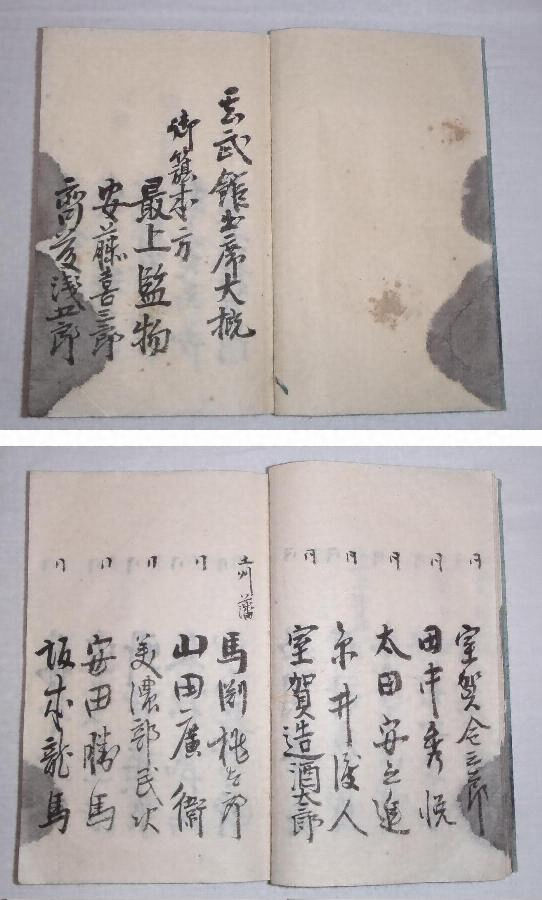 玄武館出席大概
御籏本方
最上監物
安藤喜三郎
齊藤浅五郎
同 室賀金三郎
同 田中秀悦
同 太田安之進
同 糸井後人
同 室賀造酒太郎
土州藩 馬渕桃太郎
同 山田廣衛
同 美濃部民次
同 安田勝馬
同 坂本龍馬